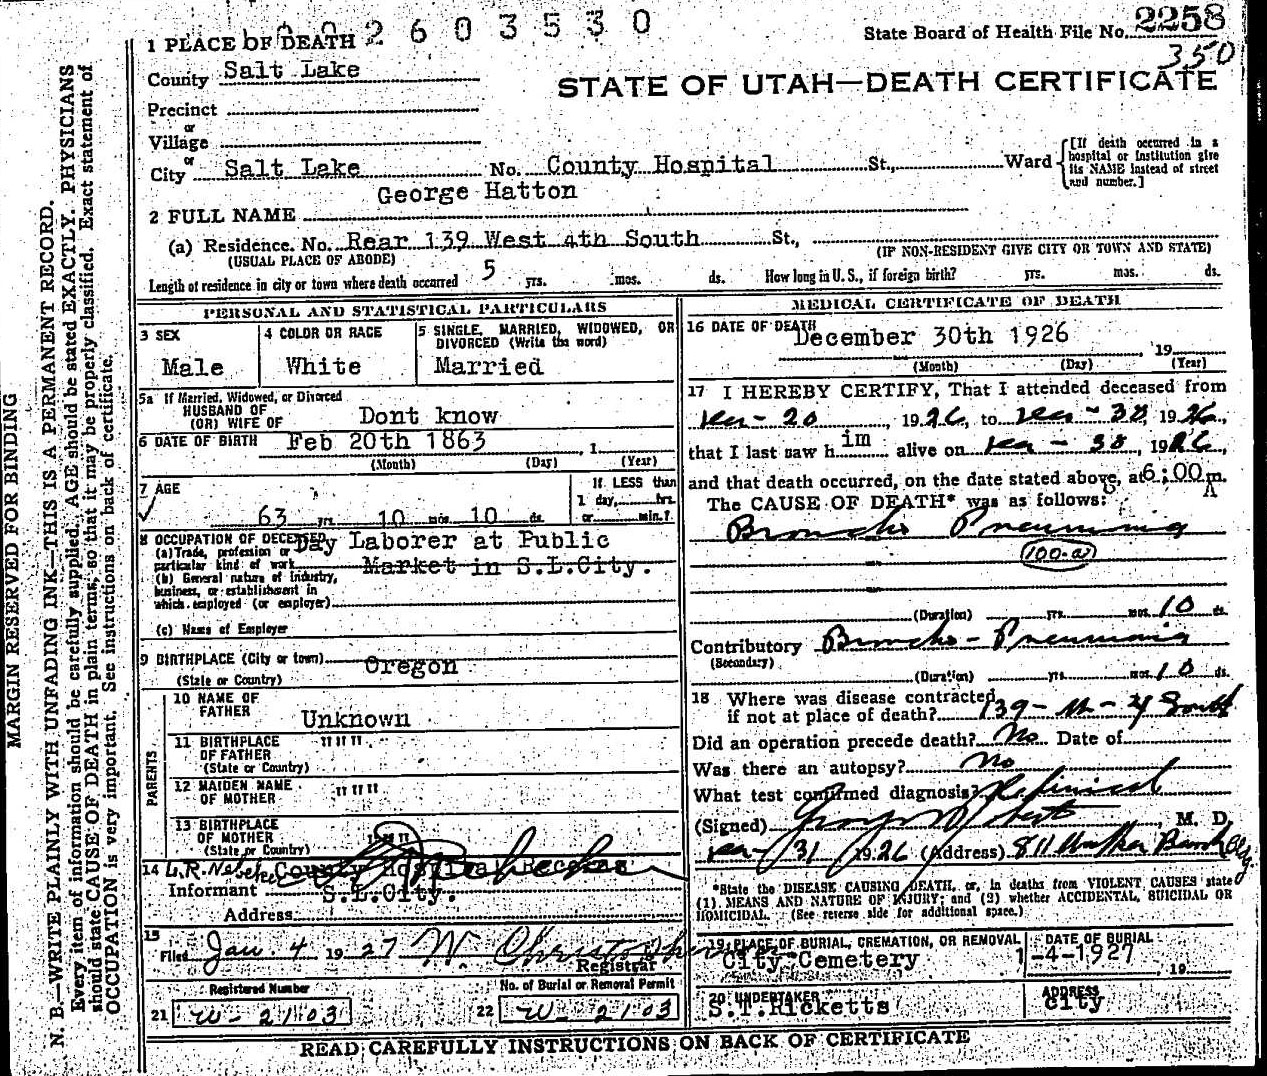 2603530
State Board of Health File No. 2258
350
1 PLACE OF DEATH
County Salt Lake
STATE OF UTAH—DEATH CERTIFICATE
Precinct
or
Village
or
City Salt Lake No. County Hospital St., Ward
[If death occurred in a hospital or institution give its NAME instead of street and number.]
George Hatton
2 FULL NAME
(a) Residence. No. Rear 139 West 4th South St.,
(USUAL PLACE OF ABODE) (IF NON-RESIDENT GIVE CITY OR TOWN AND STATE)
Length of residence in city or town where death occurred 5 yrs. mos. ds. How long in U.S., if foreign birth? yrs. mos. ds.
PERSONAL AND STATISTICAL PARTICULARS
3 SEX
Male
4 COLOR OR RACE
White
5 SINGLE, MARRIED, WIDOWED, OR
DIVORCED (Write the word)
Married
5a If Married, Widowed, or Divorced
HUSBAND OF
(OR) WIFE OF Dont know
6 DATE OF BIRTH Feb 20th 1863, 1
(Month) (Day) (Year)
7 AGE
63 yrs. 10 mos. 10 ds.
If LESS than
1 day, hrs.
or min.?
8 OCCUPATION OF DECEASED
(a) Trade, profession or
particular kind of work
Day Laborer at Public
Market in S.L.City.
(b) General nature of industry,
business, or establishment in
which employed (or employer)
(c) Name of Employer
9 BIRTHPLACE (City or town)
(State or Country) Oregon
PARENTS
10 NAME OF
FATHER Unknown
11 BIRTHPLACE
OF FATHER " " " "
(State or Country)
12 MAIDEN NAME
OF MOTHER " " " "
13 BIRTHPLACE
OF MOTHER " " " "
(State or Country)
14
Informant County Hospital Records
S.L.City.
Address
15
Filed Jan. 4 1927 W. Christopherson
Registrar
Registered Number
21 W-2103
No. of Burial or Removal Permit
22 W-2103
MEDICAL CERTIFICATE OF DEATH
16 DATE OF DEATH
December 30th 1926, 19
(Month) (Day) (Year)
17 I HEREBY CERTIFY, That I attended deceased from
Dec-20, 1926, to Dec-30, 1926,
that I last saw him alive on Dec-30, 1926,
and that death occurred, on the date stated above, at 6:00 A m.
The CAUSE OF DEATH* was as follows:
Broncho Pneumonia
100-a
(Duration) yrs. mos. 10 ds.
Contributory Broncho-Pneumonia
(Secondary)
(Duration) yrs. mos. 10 ds.
18 Where was disease contracted
if not at place of death? 139-W-4 South
Did an operation precede death? No Date of
Was there an autopsy? No
What test confirmed diagnosis?
(Signed) , M. D.
Dec-31 1926 (Address) 811 Walker Bank Bldg
*State the DISEASE CAUSING DEATH, or, in deaths from VIOLENT CAUSES state
(1) MEANS AND NATURE OF INJURY; and (2) whether ACCIDENTAL, SUICIDAL OR
HOMICIDAL. (See reverse side for additional space.)
19 PLACE OF BURIAL, CREMATION, OR REMOVAL
City Cemetery
DATE OF BURIAL
1-4-1927, 19
20 UNDERTAKER
S.T.Ricketts
ADDRESS
City
READ CAREFULLY INSTRUCTIONS ON BACK OF CERTIFICATE
MARGIN RESERVED FOR BINDING
N. B.—WRITE PLAINLY WITH UNFADING INK—THIS IS A PERMANENT RECORD.
Every item of information should be carefully supplied. AGE should be stated EXACTLY. PHYSICIANS
should state CAUSE OF DEATH in plain terms, so that it may be properly classified. Exact statement of
OCCUPATION is very important. See instructions on back of certificate.